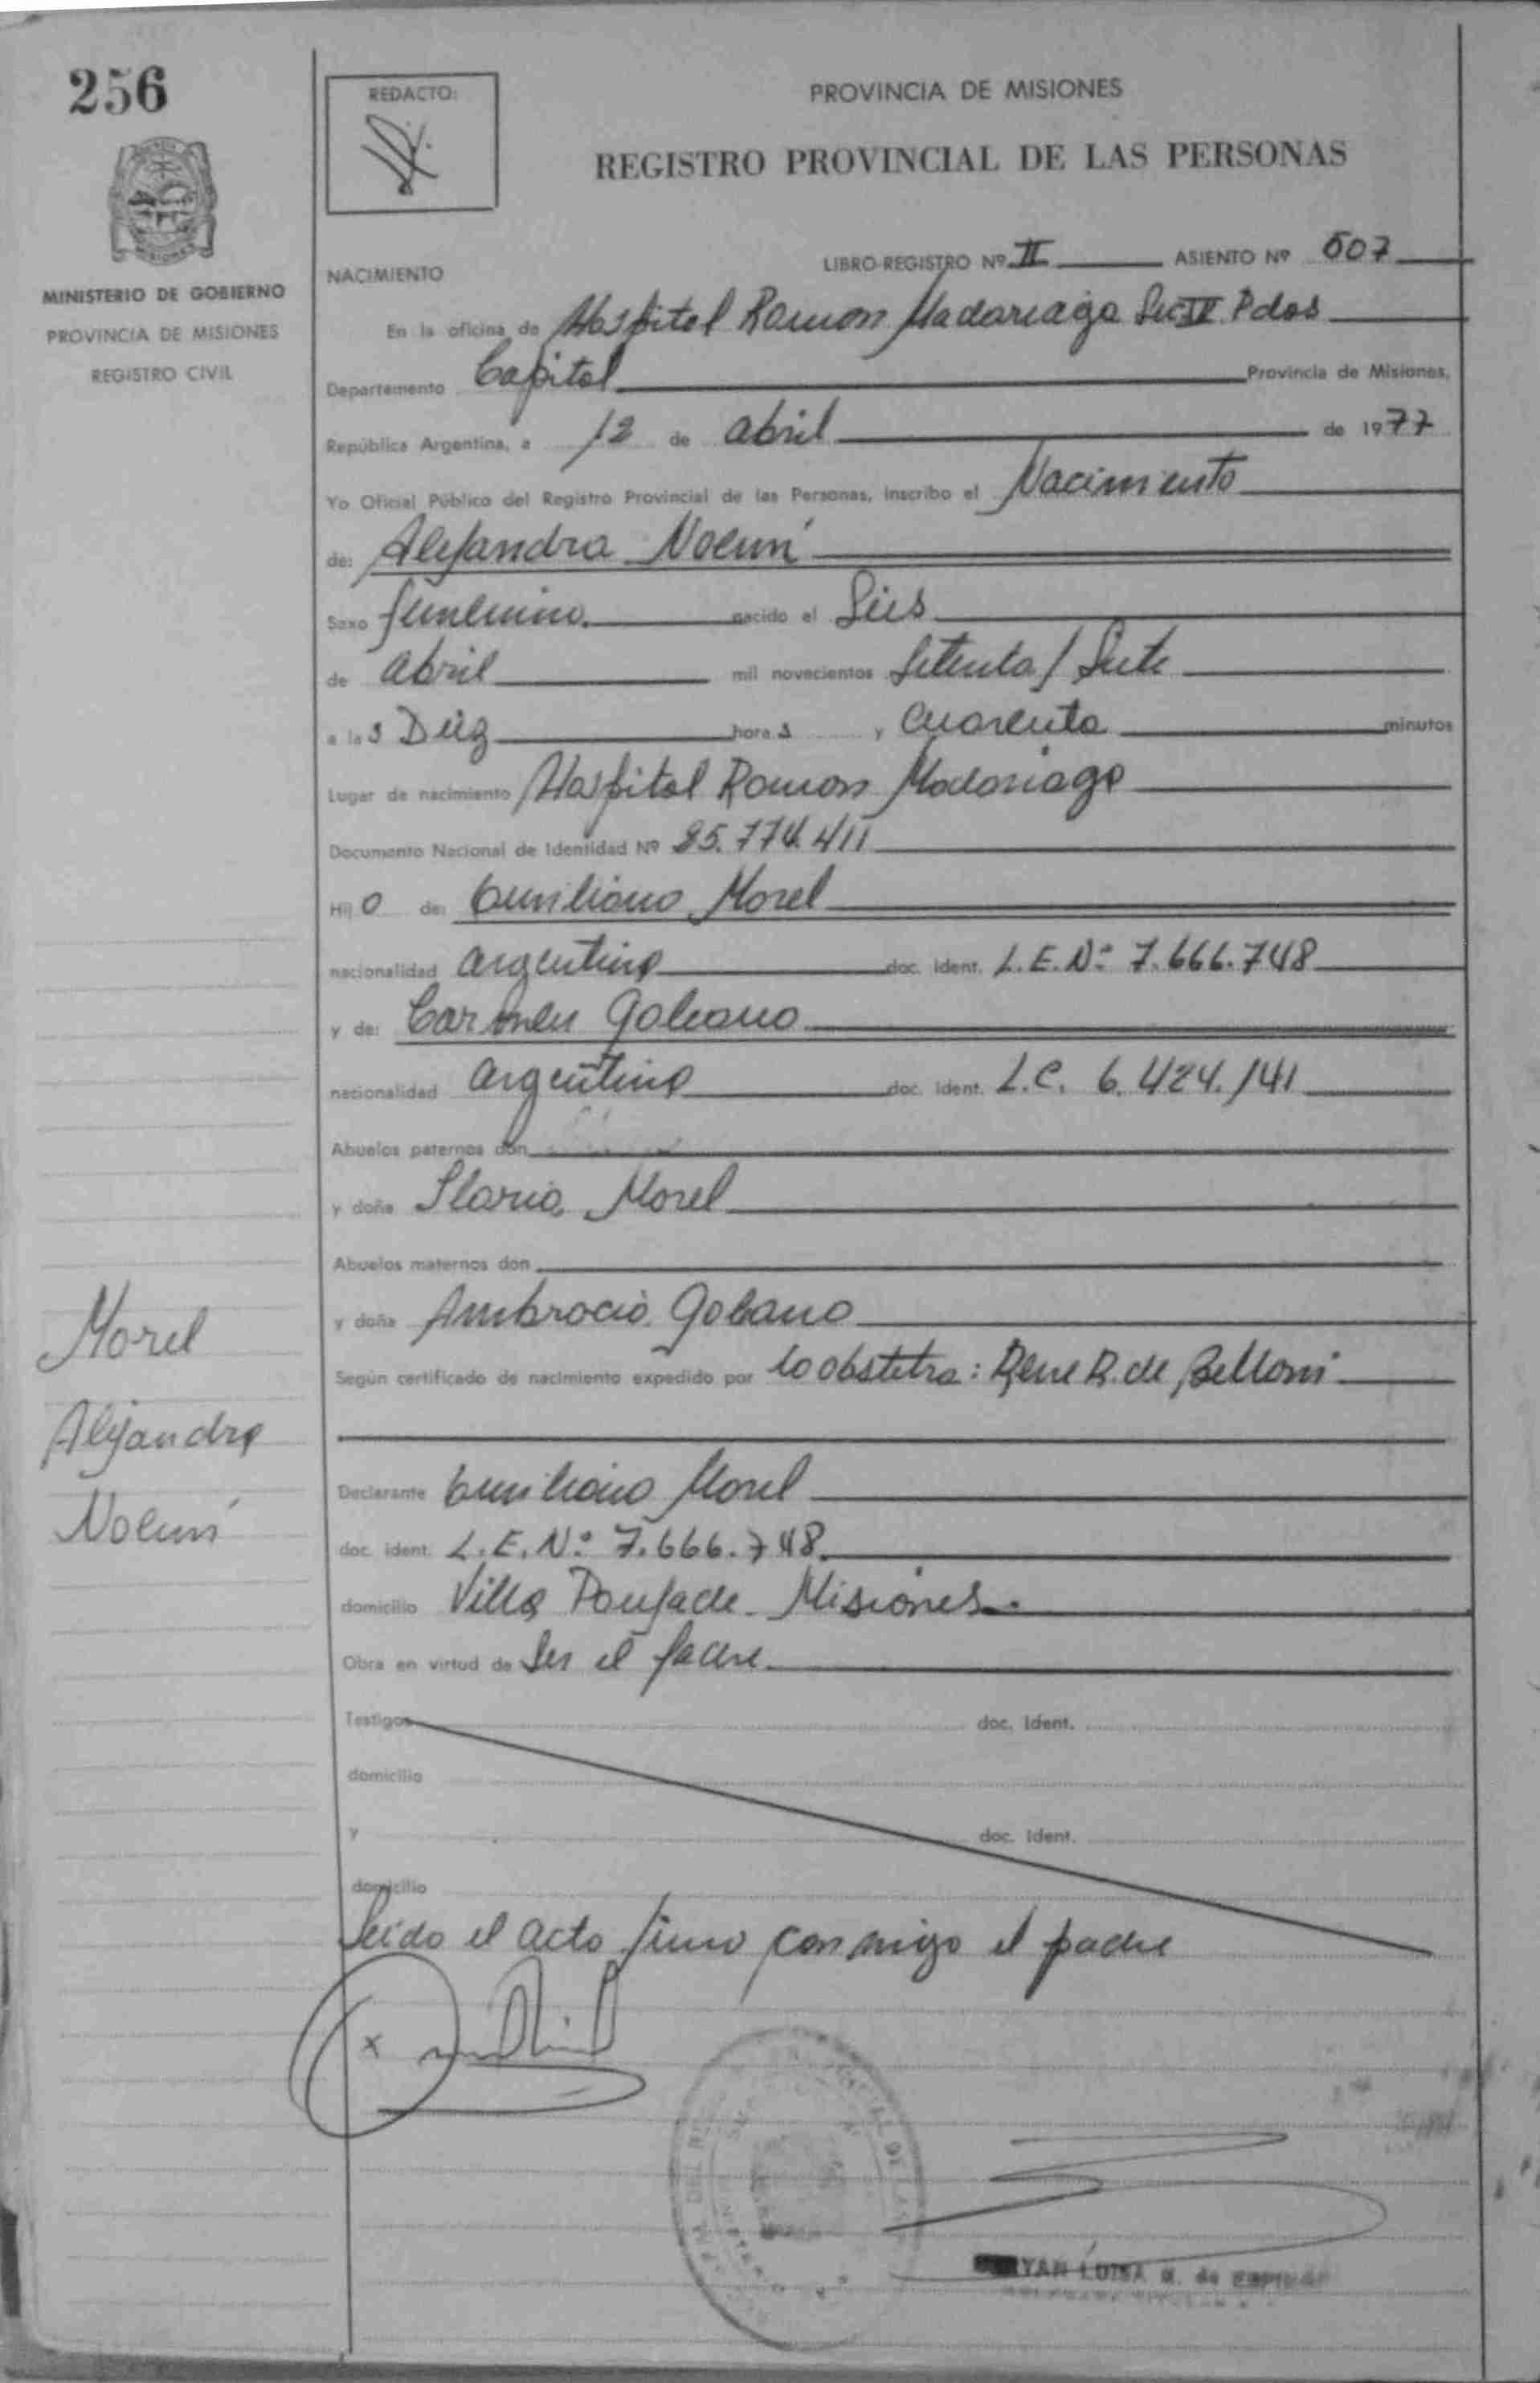 256
REDACTO:
PROVINCIA DE MISIONES
REGISTRO PROVINCIAL DE LAS PERSONAS
MINISTERIO DE GOBIERNO
PROVINCIA DE MISIONES
REGISTRO CIVIL
NACIMIENTO
LIBRO-REGISTRO Nº II ASIENTO Nº 507
En la oficina de Hospital Ramon Madariaga Sec II Pdas
Departamento Capital Provincia de Misiones,
República Argentina, a 12 de abril de 1977
Yo Oficial Público del Registro Provincial de las Personas, inscribo el Nacimiento
de: Alejandra Noemí
Sexo femenino. nacido el Seis
de abril mil novecientos Setenta / Siete
a las Diez horas y cuarenta minutos
Lugar de nacimiento Hospital Ramon Madariaga
Documento Nacional de Identidad Nº 25.774.411
Hijo de: Emiliano Morel
nacionalidad argentino doc. Ident. L.E.Nº 7.666.748
y de: Carmen Galeano
nacionalidad argentina doc. Ident. L.C. 6.424.141
Abuelos paternos don
y doña Ilaria Morel
Abuelos maternos don
y doña Ambrocia Galeano
Según certificado de nacimiento expedido por la obstetra: Rene R. de Belloni
Declarante Emiliano Morel
doc. ident. L.E. Nº 7.666.748.
domicilio Villa Poujade - Misiones.
Obra en virtud de Ser el padre.
Morel
Alejandra
Noemí
Testigos doc. Ident.
domicilio
y doc. Ident.
domicilio
Leído el acta firma conmigo el padre
x
LUISA